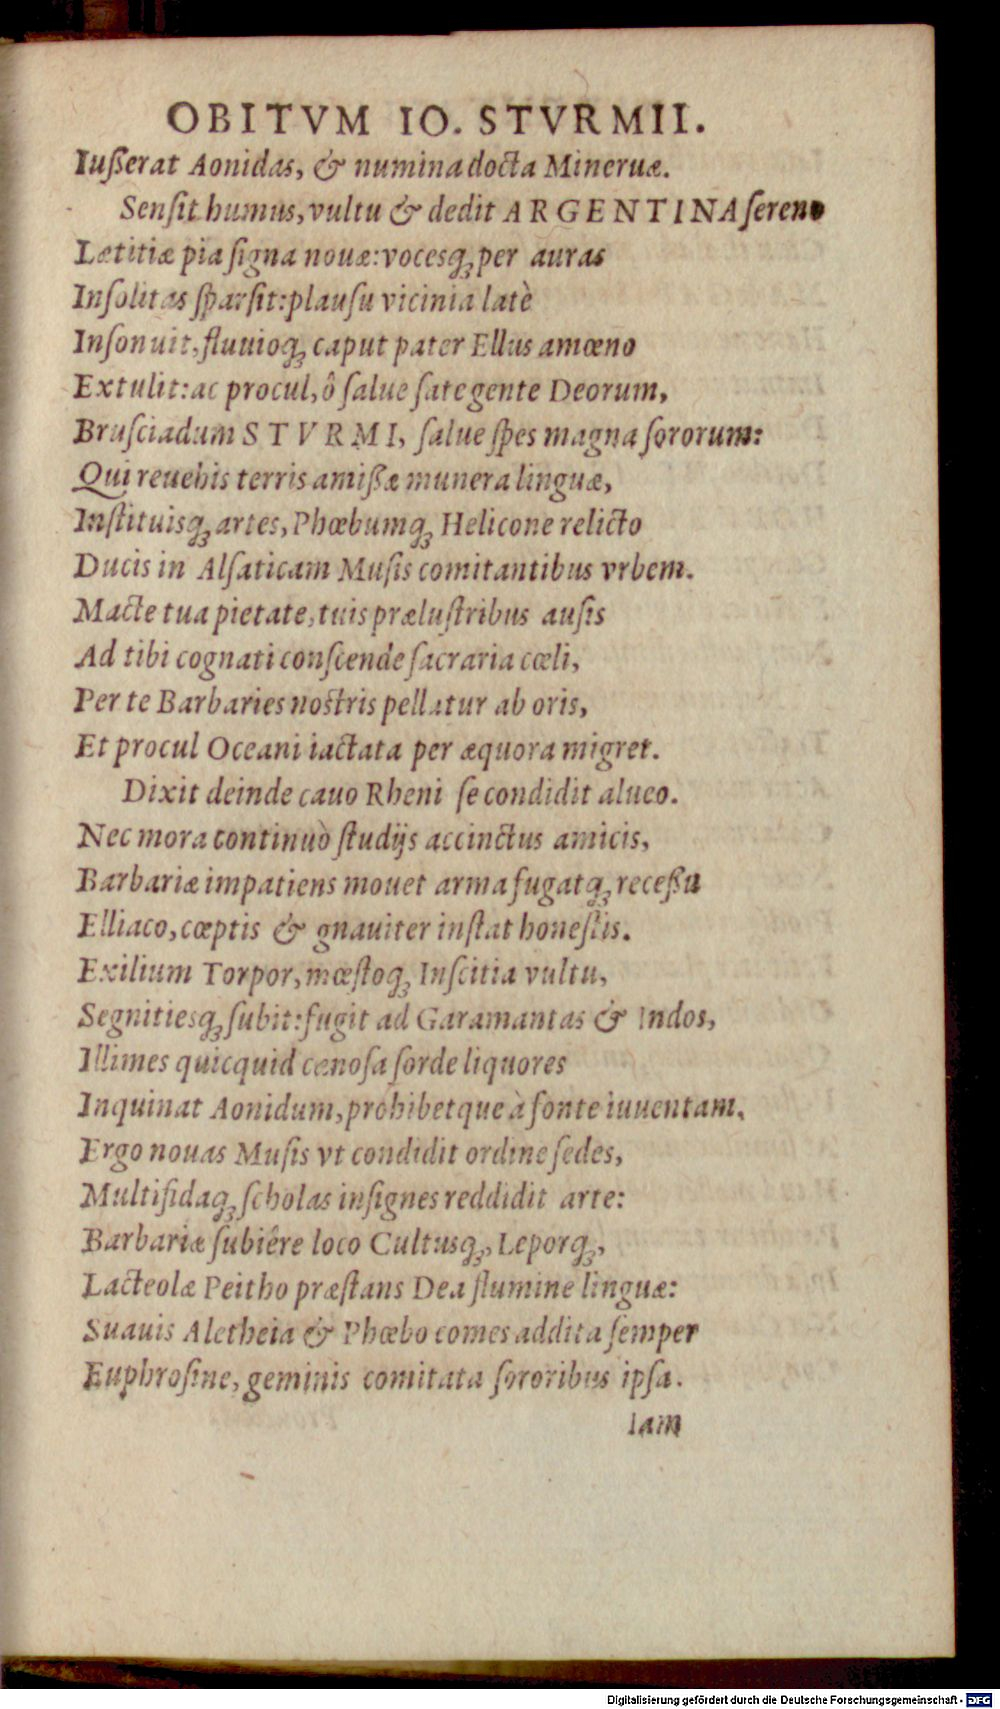 OBITVM IO. STVRMII.
Iußerat Aonidas, & numina docta Mineruæ.
Senſit humus, vultu & dedit ARGENTINA ſereno
Lætitiæ pia ſigna nouæ: vocesq́; per auras
Inſolitas ſparſit: plauſu vicinia latè
Inſonuit, fluuioq́; caput pater Ellus amœno
Extulit: ac procul, ô ſalue ſate gente Deorum,
Bruſciadum STVRMI, ſalue ſpes magna ſororum:
Qui reuehis terris amißæ munera linguæ,
Inſtituisq́; artes, Phœbumq́; Helicone relicto
Ducis in Alſaticam Muſis comitantibus vrbem.
Macte tua pietate, tuis præluſtribus auſis
Ad tibi cognati conſcende ſacraria cœli,
Per te Barbaries noſtris pellatur ab oris,
Et procul Oceani iactata per æquora migret.
Dixit deinde cauo Rheni ſe condidit alueo.
Nec mora continuò ſtudijs accinctus amicis,
Barbariæ impatiens mouet arma fugatq́; receßu
Elliaco, cœptis & gnauiter inſtat honeſtis.
Exilium Torpor, mœſtoq́; Inſcitia vultu,
Segnitiesq́; ſubit: fugit ad Garamantas & Indos,
Illimes quicquid cænoſa ſorde liquores
Inquinat Aonidum, prohibetque à fonte iuuentam.
Ergo nouas Muſis vt condidit ordine ſedes,
Multifidaq́; ſcholas inſignes reddidit arte:
Barbariæ ſubiêre loco Cultusq́;, Leporq́;,
Lacteolæ Peitho præſtans Dea flumine linguæ:
Suauis Aletheia & Phœbo comes addita ſemper
Euphroſine, geminis comitata ſororibus ipſa.
Iam
Digitalisierung gefördert durch die Deutsche Forschungsgemeinschaft - DFG